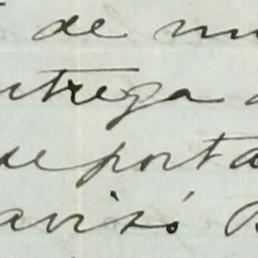 de mu
ntrega
deporta
avisó